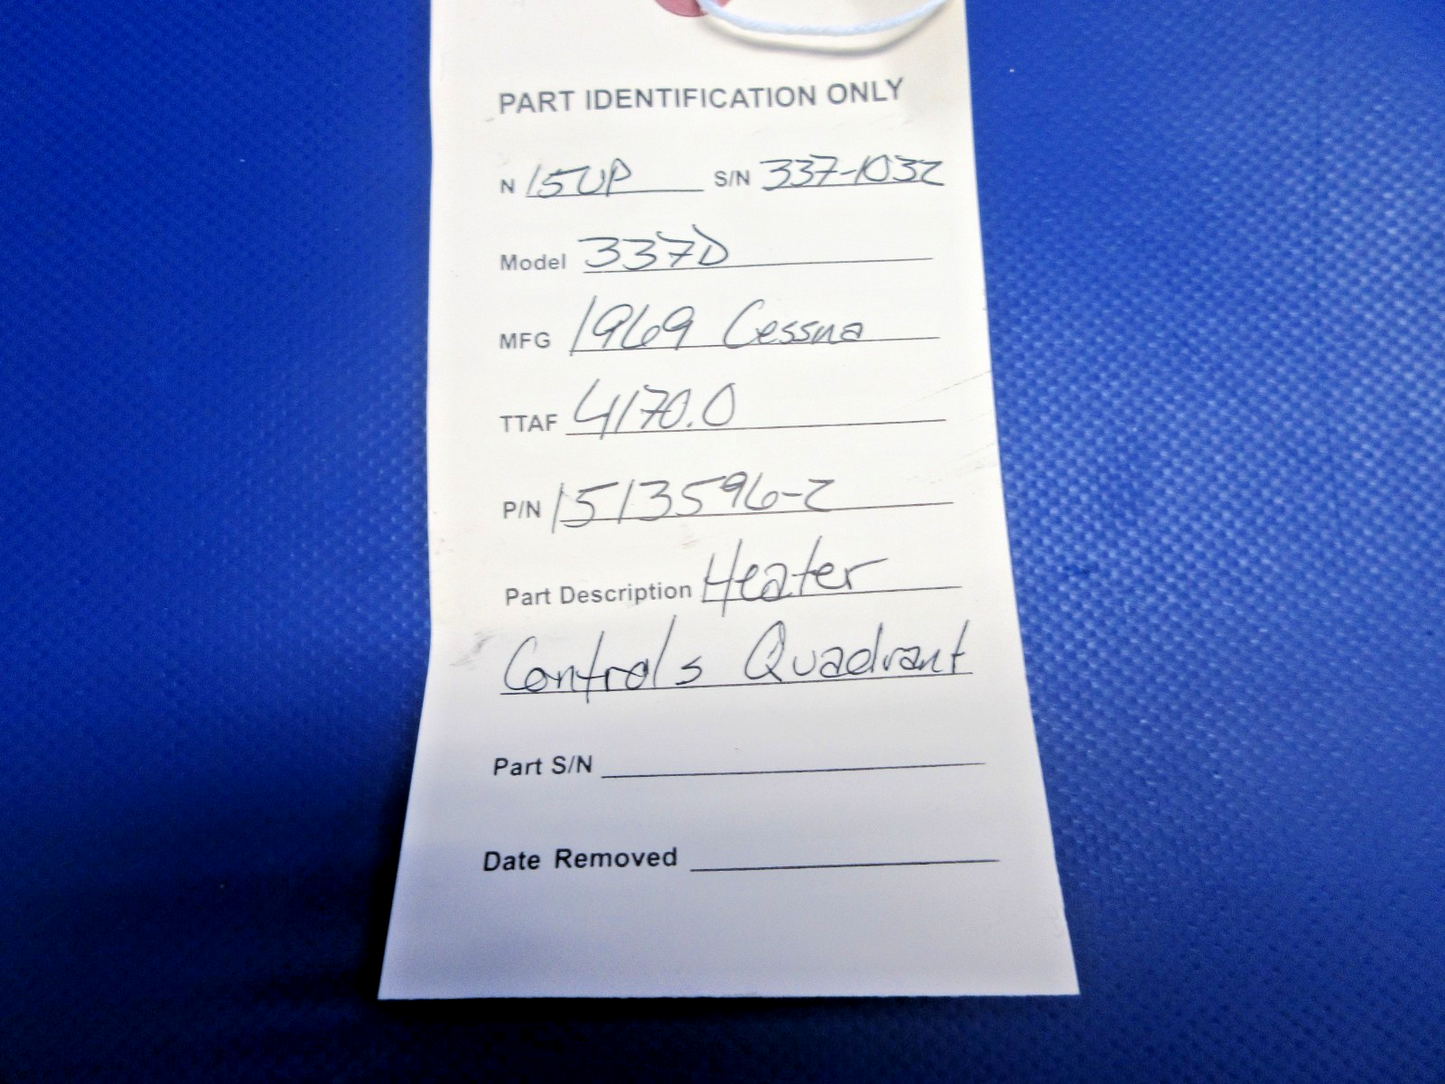 PART IDENTIFICATION ONLY
N 15UP S/N 337-1032
Model 337D
MFG 1969 Cessna
TTAF 4170.0
P/N 1513596-2
Part Description Heater
Controls Quadrant
Part S/N
Date Removed